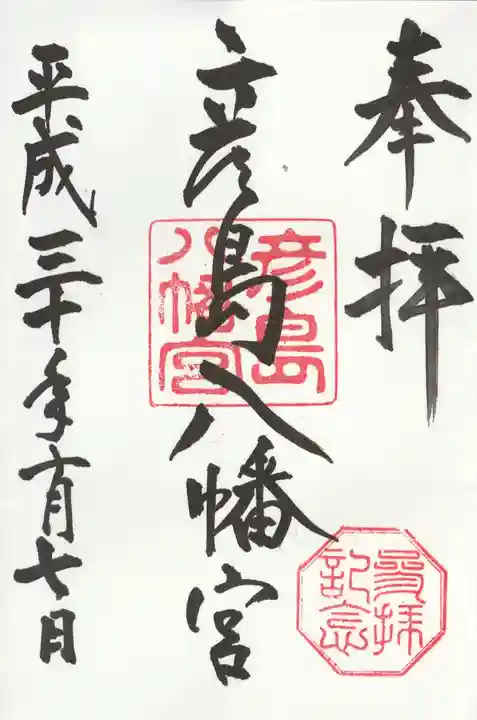 奉拝
彦島八幡宮
彦島
八幡宮
平成三十年十月七日
参拝
記念